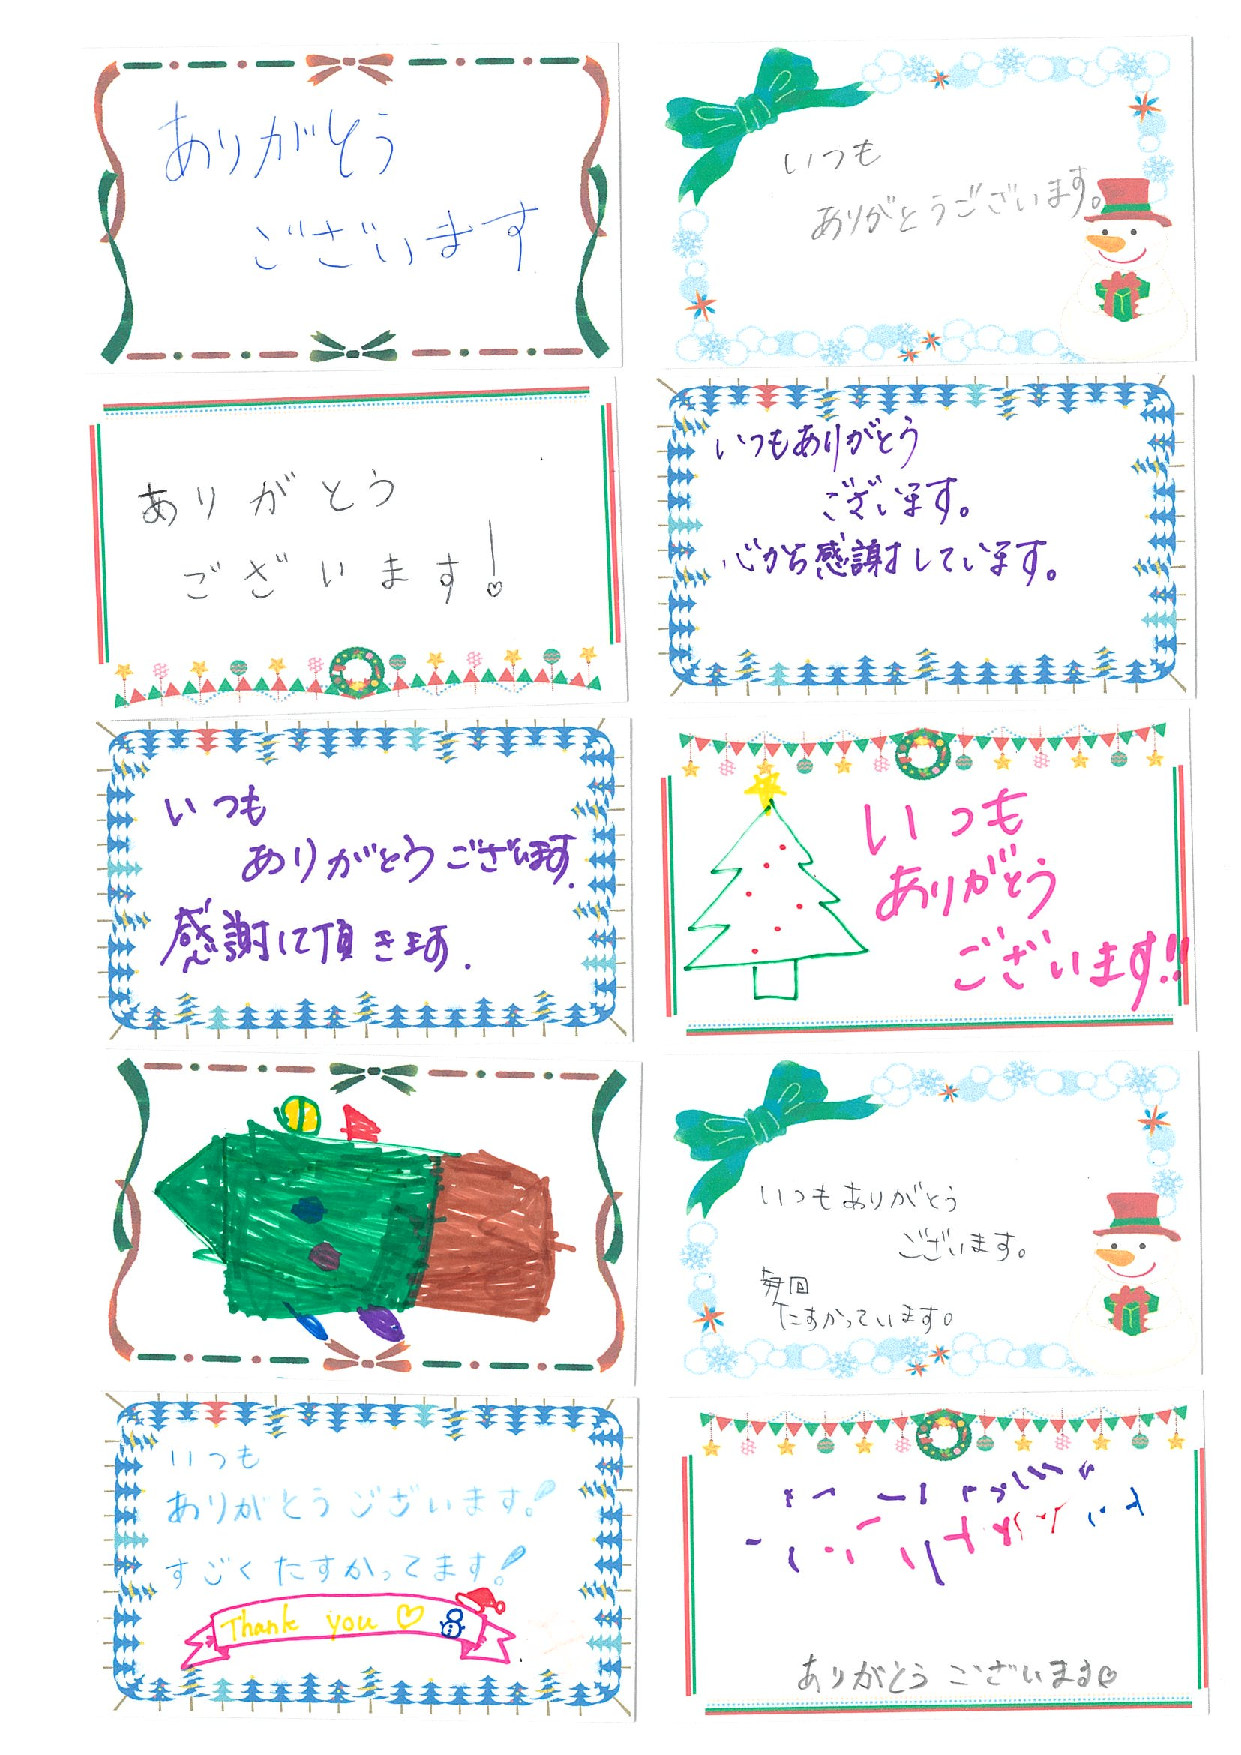 ありがとう
ございます
いつも
ありがとうございます。
ありがとう
ございます!
いつもありがとう
ございます。
心から感謝しています。
いつも
ありがとうございます.
感謝して頂きます.
いつも
ありがとう
ございます!!
いつもありがとう
ございます。
毎回
たすかっています。
いつも
ありがとうございます!
すごくたすかってます!
Thank you♡
ありがとうございます♡